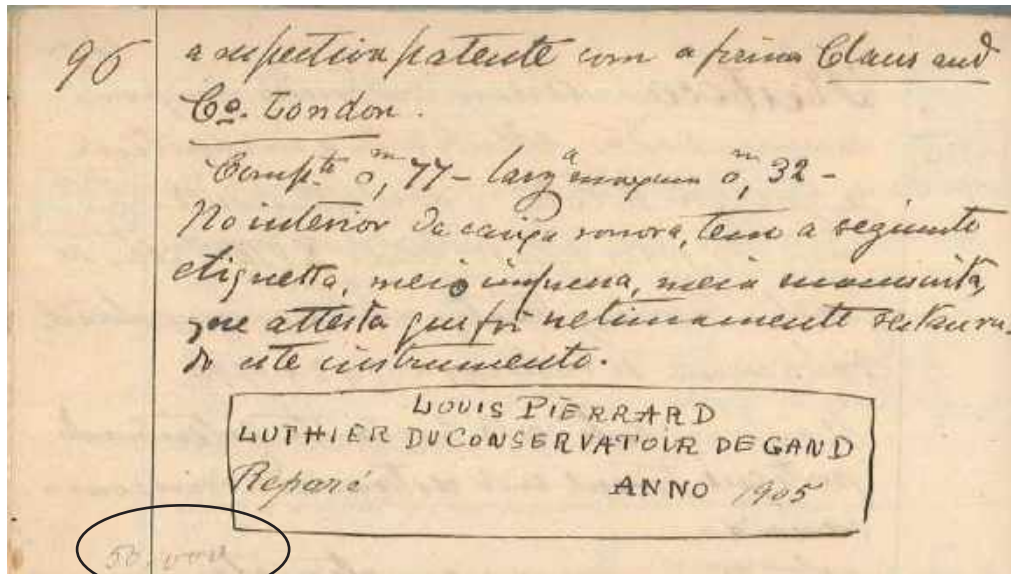 96
a respectiva patente com a firma Claus and
Co. London.
Comp.te 0,m 77 – larg.a maxima 0,m 32 –
No interior da caixa sonora, tem a seguinte
etiquetta, meio impressa, meia manuscrita,
que attesta que foi ultimamente restaura-
do este instrumento.
LOUIS PIERRARD
LUTHIER DU CONSERVATOIR DE GAND
Reparé ANNO 1905
50,000